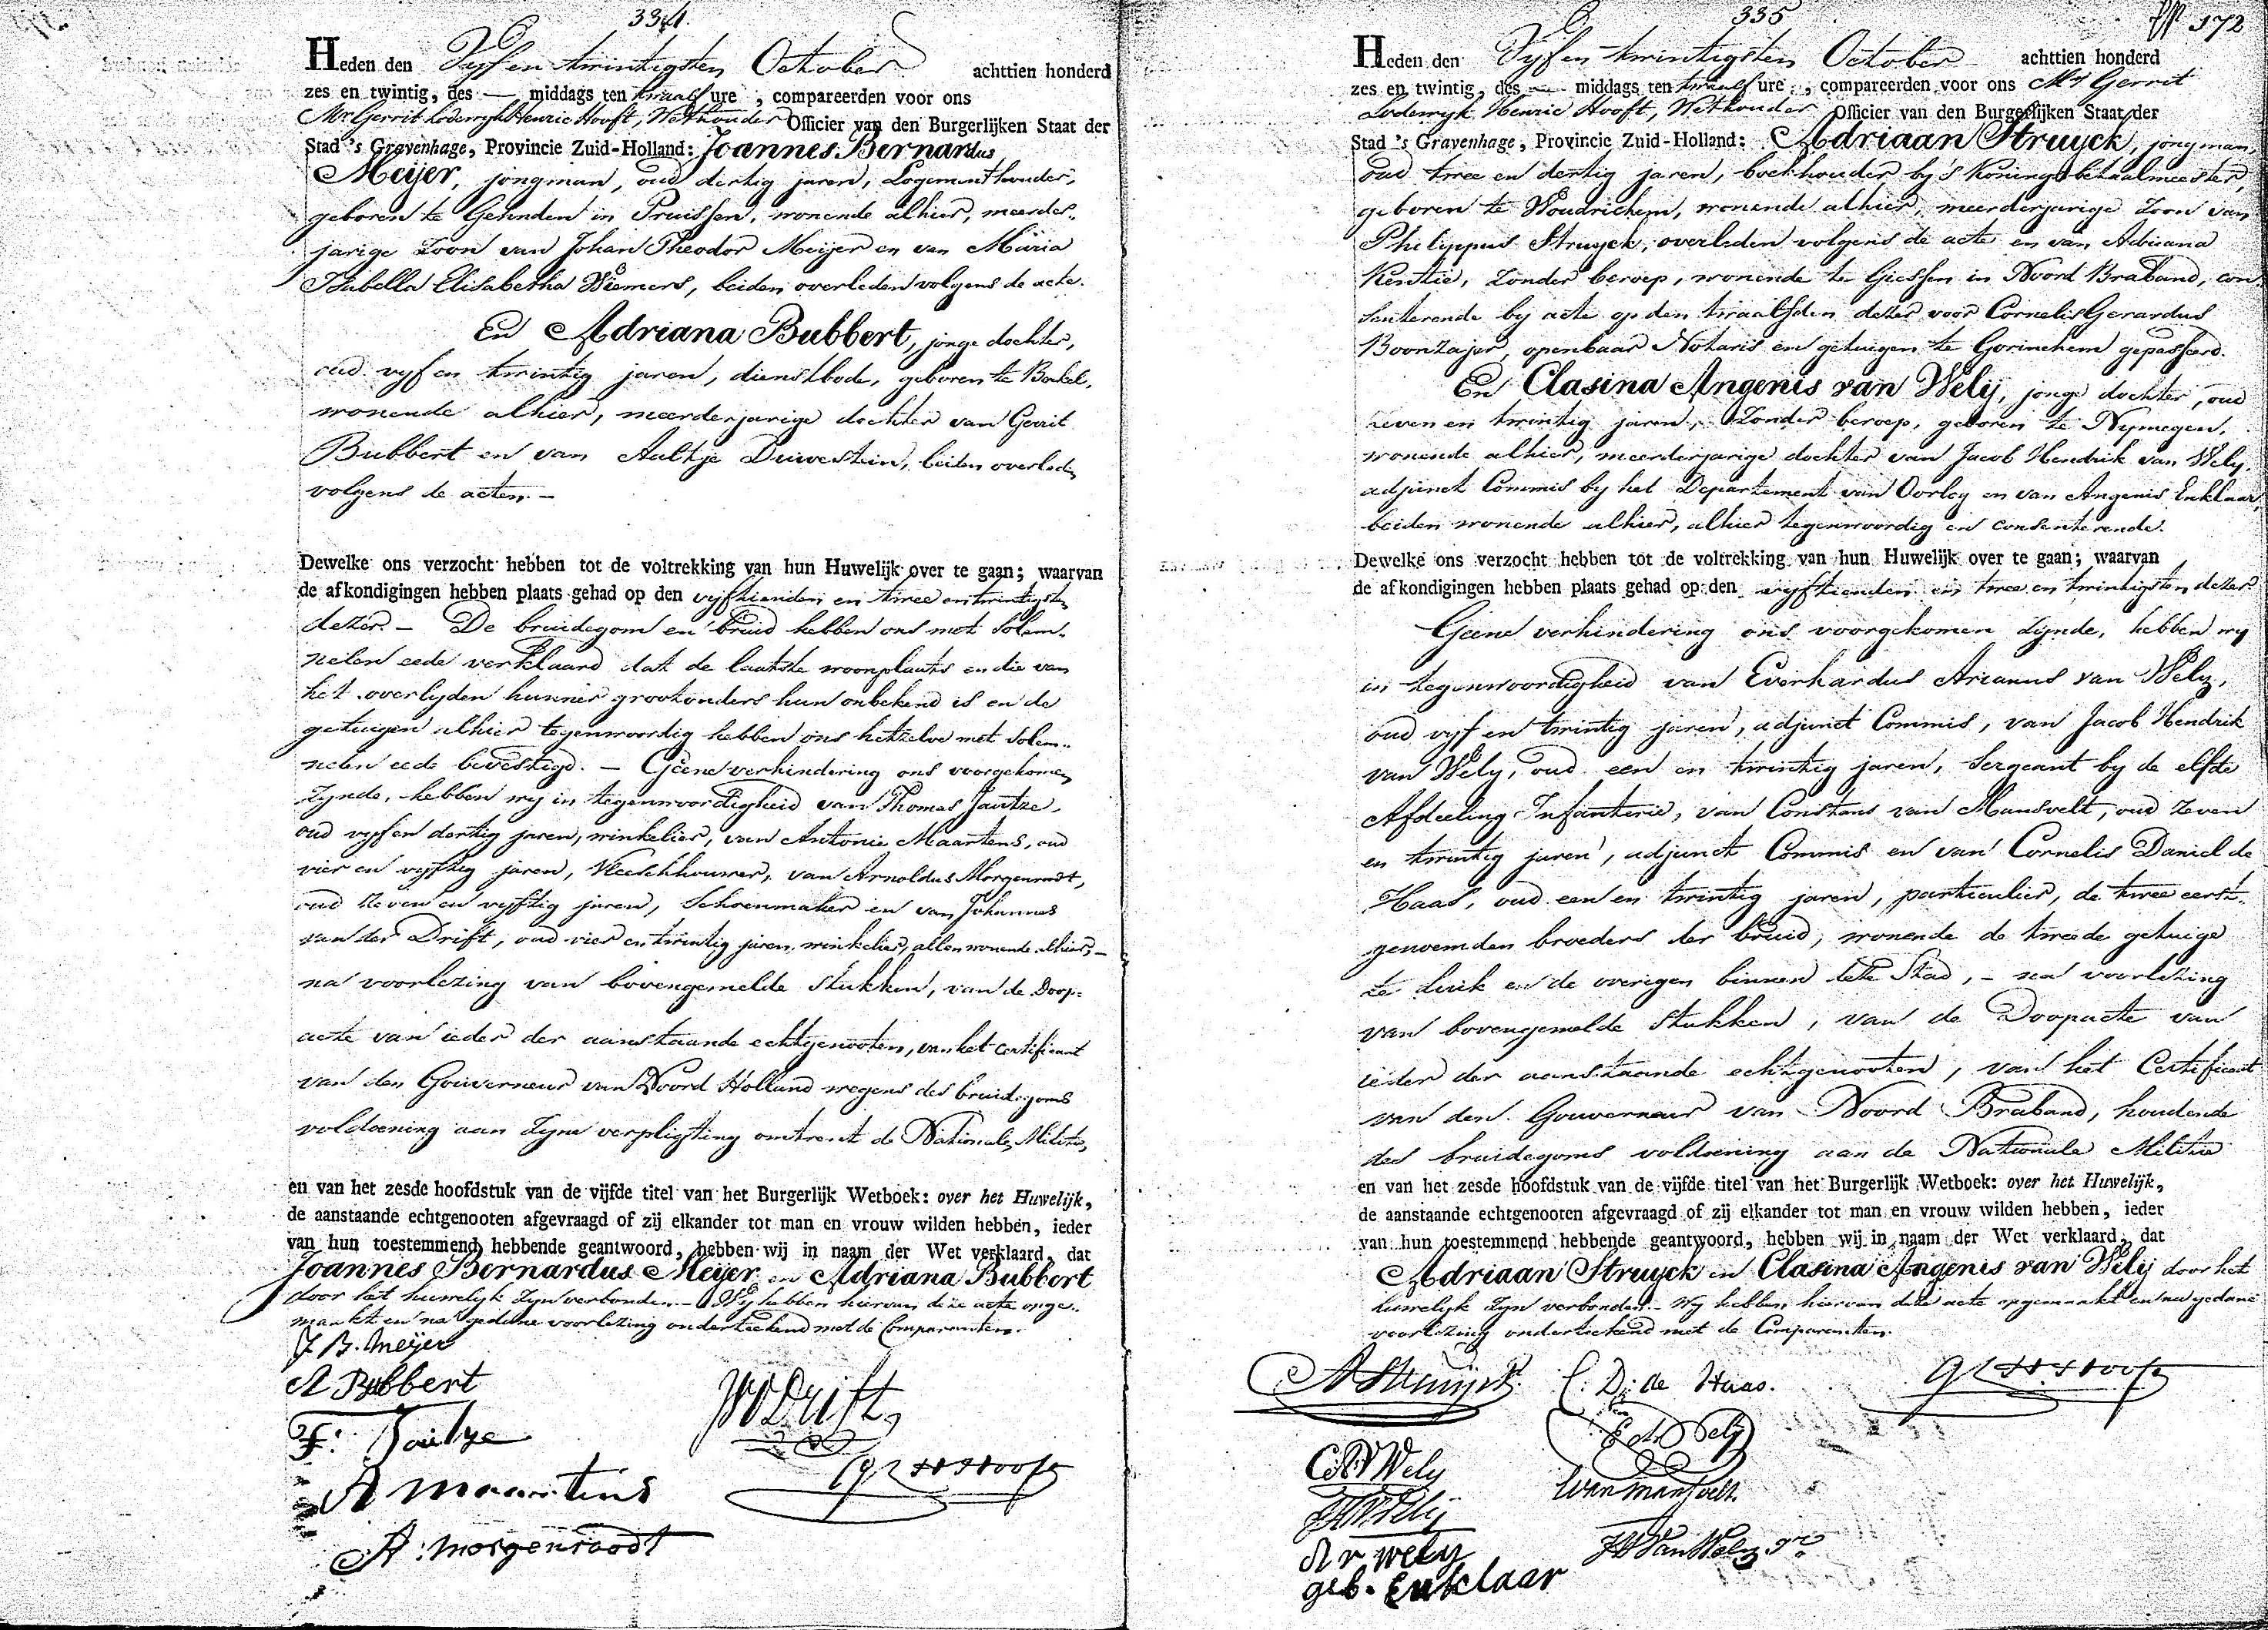 334.
Heden den Vyf en twintigsten October achttien honderd
zes en twintig, des — middags ten twaalf ure , compareerden voor ons
Mr Gerrit Lodewyk Henric Hooft, Wethouder Officier van den Burgerlijken Staat der
Stad 's Gravenhage, Provincie Zuid-Holland: Joannes Bernardus
Meijer, jongman, oud dertig jaren, Logementhouder,
geboren te in Pruissen, wonende alhier, meerder-
jarige Zoon van Johan Theodor Meijer en van Maria
Isabella Elisabetha Wiemers, beiden overleden volgens de acte.
En Adriana Bubbert, jonge dochter,
oud vyf en twintig jaren, dienstbode, geboren te
wonende alhier, meerderjarige dochter van Gerrit
Bubbert en van Aaltje Duivestein, beiden overleden
volgens de acten. —
Dewelke ons verzocht hebben tot de voltrekking van hun Huwelijk over te gaan; waarvan
de afkondigingen hebben plaats gehad op den vyftienden en twee en twintigsten
dezer. — De bruidegom en bruid hebben ons met solem-
nelen eede verklaard dat de laatste woonplaats en die van
het overlyden hunner grootouders hun onbekend is en de
getuigen alhier tegenwoordig hebben ons hetzelve met solem-
nelen eede bevestigd. — Geene verhindering ons voorgekomen
zynde, hebben wy in tegenwoordigheid van Thomas Jautze,
oud vyf en dertig jaren, winkelier, van Antonie Maartens, oud
vier en vyftig jaren, Vleeschhouwer, van Arnoldus Morgenrodt,
oud zeven en vyftig jaren, Schoenmaker en van Johannes
van der Drift, oud vier en twintig jaren, winkelier, allen wonende alhier, —
na voorlezing van bovengemelde stukken, van de Doop-
acte van ieder der aanstaande echtgenooten, van het certificaat
van den Gouverneur van Noord Holland wegens des bruidegoms
voldoening aan zyne verpligting omtrent de Nationale Militie,
en van het zesde hoofdstuk van de vijfde titel van het Burgerlijk Wetboek: over het Huwelijk,
de aanstaande echtgenooten afgevraagd of zij elkander tot man en vrouw wilden hebben, ieder
van hun toestemmend hebbende geantwoord, hebben wij in naam der Wet verklaard, dat
Joannes Bernardus Meijer en Adriana Bubbert
door het huwelyk zyn verbonden. — Wy hebben hiervan deze acte opge-
maakt en na gedane voorlezing onderteekend met de Comparanten.
J B. Meÿer
A Bubbert
A Maartens
A: Morgenroodt
JVDDrift
GLHHooft
335
172
Heden den Vyf en twintigsten October achttien honderd
zes en twintig, des — middags ten twaalf ure , compareerden voor ons Mr Gerrit
Lodewyk Henric Hooft, Wethouder Officier van den Burgerlijken Staat der
Stad 's Gravenhage, Provincie Zuid-Holland: Adriaan Struyck, jongman,
oud twee en dertig jaren, boekhouder by 's Konings betaalmeester
geboren te Woudrichem, wonende alhier, meerderjarige Zoon van
Philippus Struyck, overleden volgens de acte en van Adriana
Kentie, zonder beroep, wonende te Giessen in Noord Braband, con-
senterende by acte op den twaalfden dezer voor Cornelis Gerardus
Boonzajer, openbaar Notaris en getuigen te Gorinchem gepasseerd.
En Clasina Angenis van Wely, jonge dochter, oud
zeven en twintig jaren, zonder beroep, geboren te Nymegen,
wonende alhier, meerderjarige dochter van Jacob Hendrik van Wely,
adjunct Commis by het Departement van Oorlog en van Angenis Enklaar,
beiden wonende alhier, alhier tegenwoordig en consenterende.
Dewelke ons verzocht hebben tot de voltrekking van hun Huwelijk over te gaan; waarvan
de afkondigingen hebben plaats gehad op den vyftienden en twee en twintigsten dezer
Geene verhindering ons voorgekomen zynde, hebben wy
in tegenwoordigheid van Everhardus Arianus van Wely,
oud vyf en twintig jaren, adjunct Commis, van Jacob Hendrik
van Wely, oud een en twintig jaren, Sergeant by de elfde
Afdeeling Infanterie, van Constans van Mansvelt, oud zeven
en twintig jaren, adjunct Commis en van Cornelis Daniel de
Haas, oud een en twintig jaren, particulier, de twee eerst-
genoemden broeders der bruid, wonende de tweede getuige
te Luik en de overigen binnen deze Stad, — na voorlezing
van bovengemelde stukken, van de Doopacte van
ieder der aanstaande echtgenooten, van het Certificaat
van den Gouverneur van Noord Braband, houdende
des bruidegoms voldoening aan de Nationale Militie
en van het zesde hoofdstuk van de vijfde titel van het Burgerlijk Wetboek: over het Huwelijk,
de aanstaande echtgenooten afgevraagd of zij elkander tot man en vrouw wilden hebben, ieder
van hun toestemmend hebbende geantwoord, hebben wij in naam der Wet verklaard, dat
Adriaan Struyck en Clasina Angenis van Wely door het
huwelyk zyn verbonden. — Wy hebben hiervan deze acte opgemaakt en na gedane
voorlezing onderteekend met de Comparanten.
AStruijck.
C: D: de Haas.
GLHHooft
CAVWely
EAVWely
JHVWelij
CvanMansvelt.
A v Wely
geb. Enklaar
JHVanWely Jr